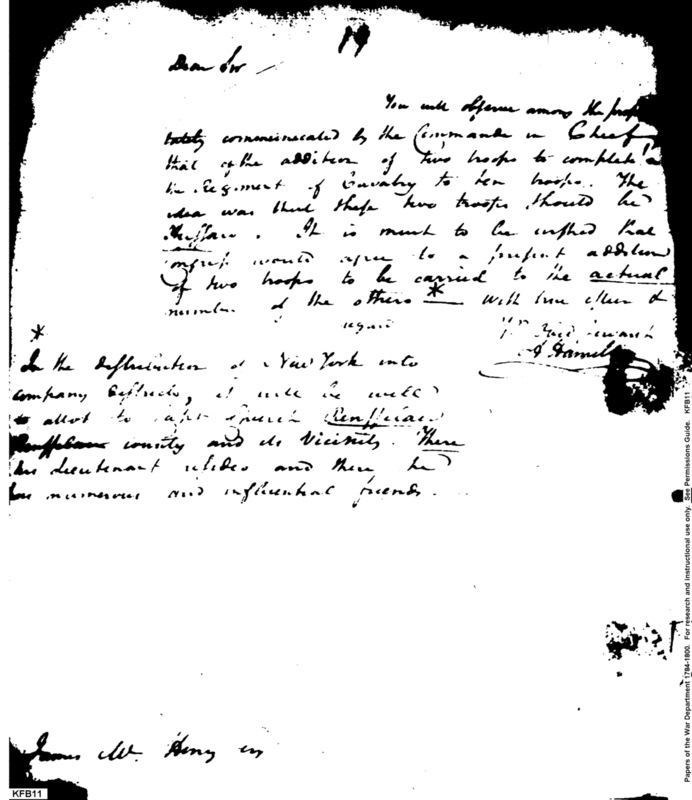 19
Dear Sir
You will observe among the
communicated by the Commander in Chief
that of the addition of two troops to complete
the Regiment of Cavalry to ten troops. The
idea was that these two troops should be
Hussars. It is meant to be wished that
Congress would agree to a present addition
of two troops to be carried to the actual
number of the others * With true esteem &
regard Yr Obed servant
A Hamilton
*
In the distribution of New York into
company districts, it will be well
to allot to Capt Rensselaer
county and its Vicinity. There
his Lieutenant resides and there he
has numerous and influential friends.
James Mc. Henry Esq
KFB11
Papers of the War Department 1784-1800. For research and instructional use only. See Permissions Guide. KFB11